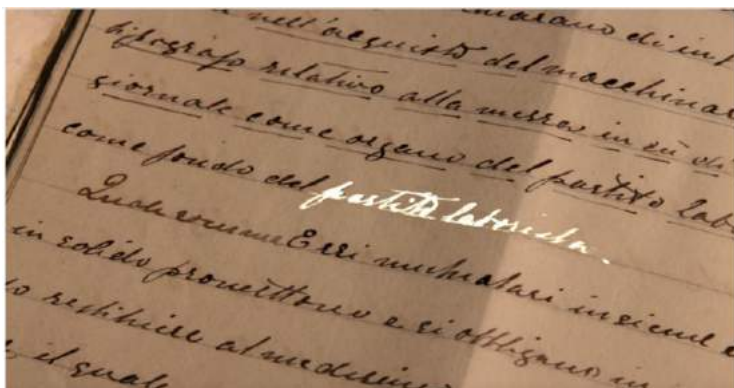 di int
nell'acquisto del macchinar
tipografo relativo alla messa in
giornale come organo del partito labo
come fondo del partito laborista.
Essi mutuatari insieme e
in solido promettono e si obbligano in
restituire al medesimo
il quale